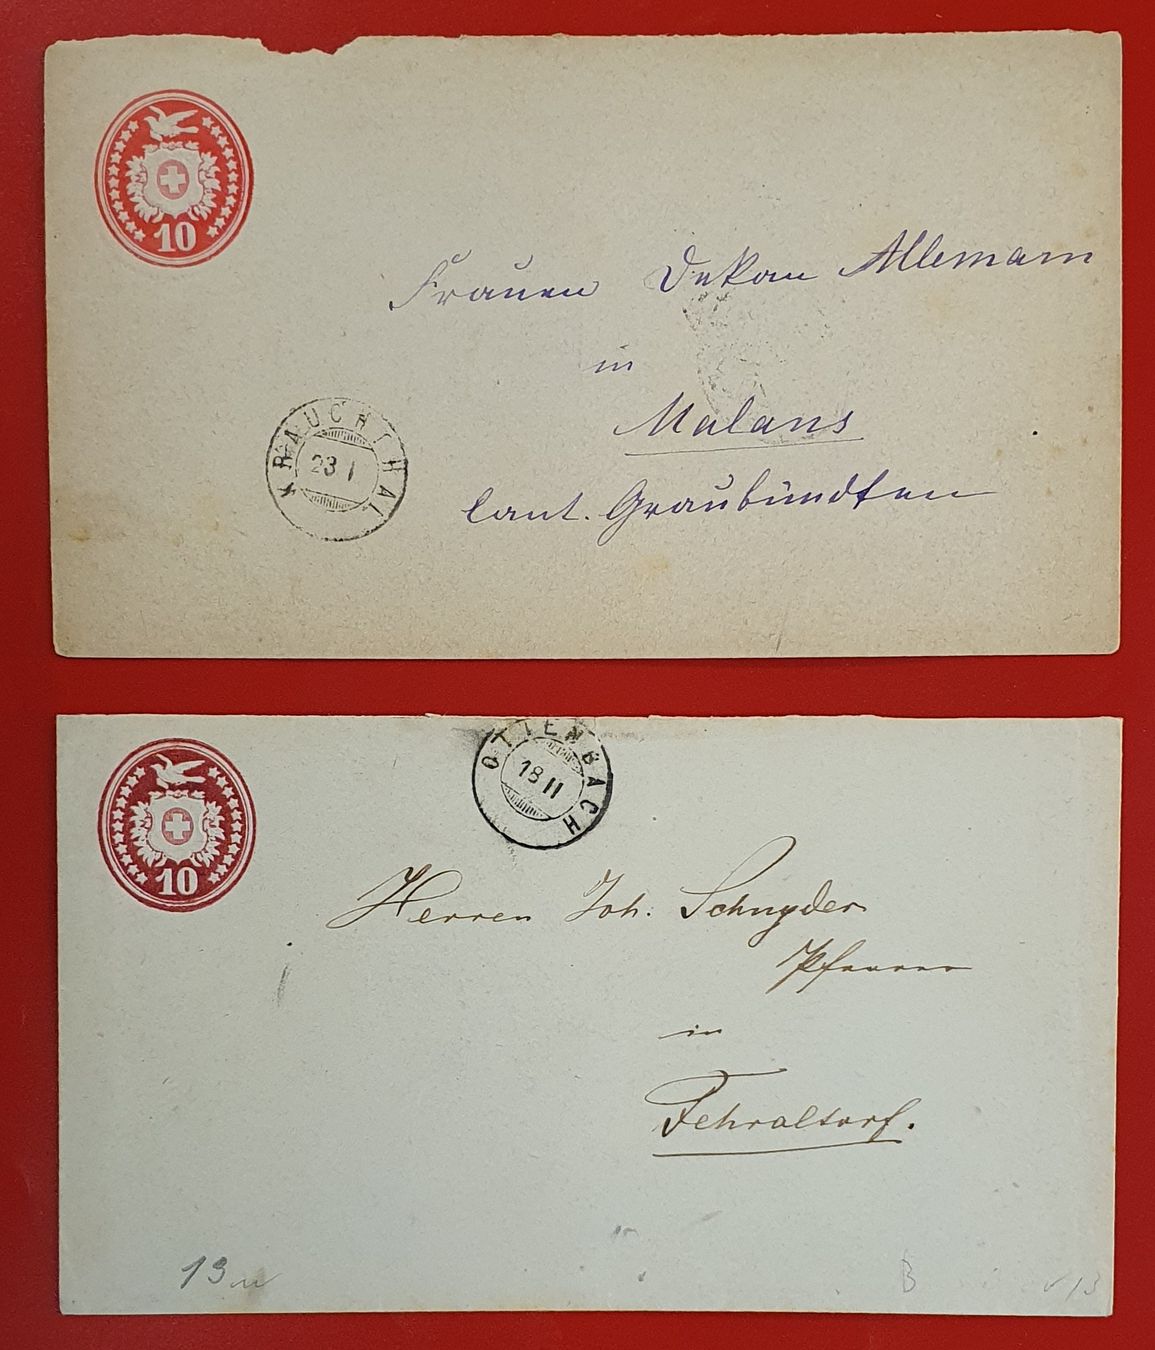 10
Frauen Dekan Allemann
in
Malans
cant. Graubündten
KRAUCHTHAL
23 I
10
OTTENBACH
18 II
Herren Joh. Schnyder
Pfarrer
in
Fehraltorf.
13
B
13